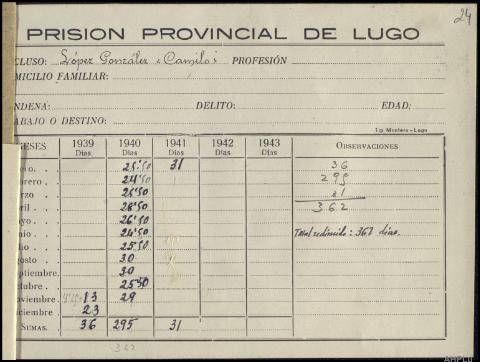 24
PRISION PROVINCIAL DE LUGO
CLUSO: López González «Camilo» PROFESIÓN
MICILIO FAMILIAR:
NDENA: DELITO: EDAD:
ABAJO O DESTINO:
Tip. Montero.-Lugo
MESES 1939 1940 1941 1942 1943 OBSERVACIONES
Días Días Días Días Días
ero. . . 25'50 31 36
brero. . 24'50 295
arzo . . 25'50 31
bril. . . 28'50 362
ayo. . . 26'50
nio. . . 24'50 Total redimido: 362 días.
lio. . . 25'50
gosto . . 30
ptiembre. 30
ctubre. . 25'50
oviembre. 13 29
iciembre. 23
SUMAS. 36 295 31
362
AHPLU